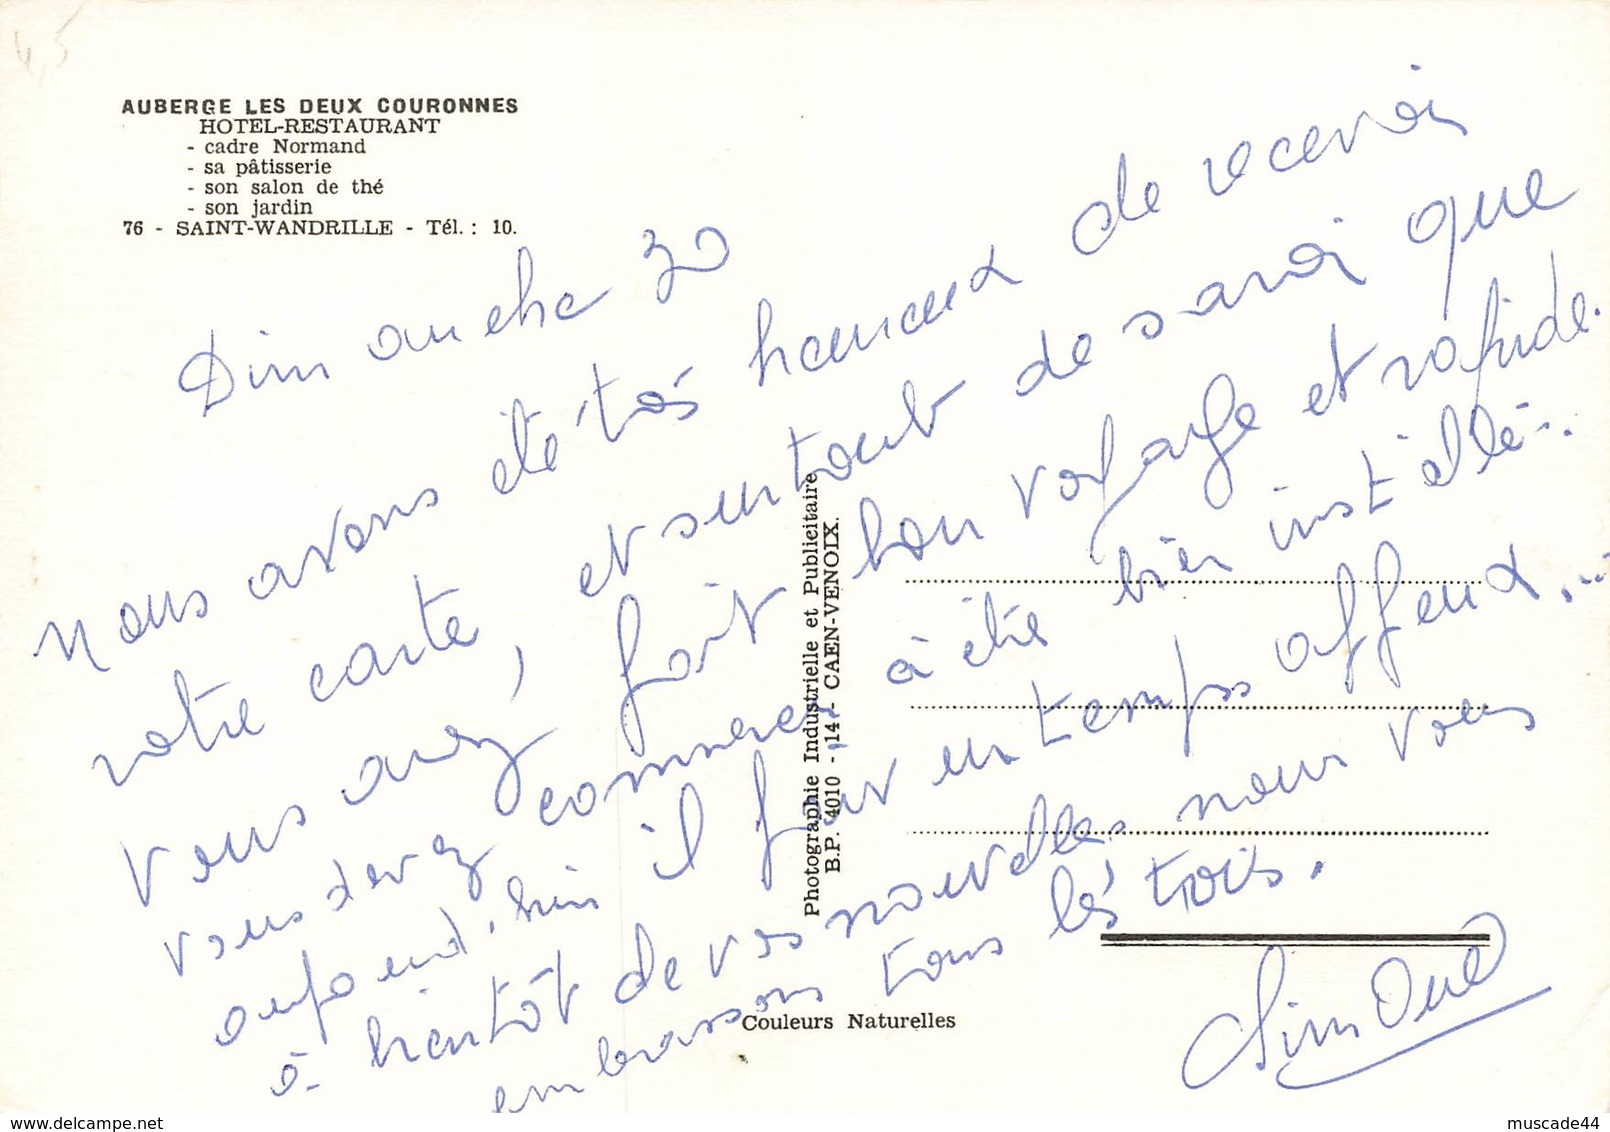 4,5
AUBERGE LES DEUX COURONNES
HOTEL-RESTAURANT
- cadre Normand
- sa pâtisserie
- son salon de thé
- son jardin
76 - SAINT-WANDRILLE - Tél. : 10.
Dimanche 30
nous avons été très heureux de recevoir
votre carte, et surtout de savoir que
vous avez fait bon voyage et rapide.
vous devez commencer à être bien installé..
aujourd'hui il fait un temps affreux...
à bientôt de vos nouvelles nous vous
embrassons tous les trois.
Simone
Photographie Industrielle et Publicitaire
B.P. 4010 - 14 - CAEN-VENOIX.
Couleurs Naturelles
www.delcampe.net
muscade44